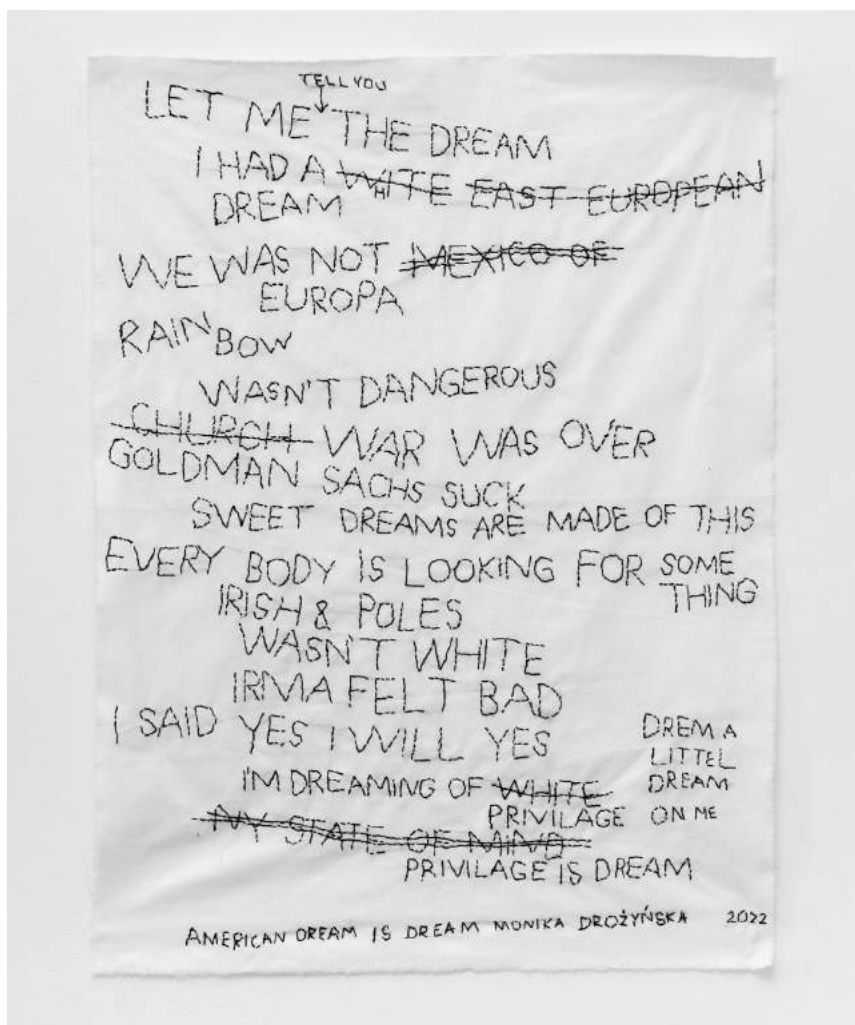 TELL YOU
LET ME THE DREAM
I HAD A WHITE EAST EUROPEAN
DREAM
WE WAS NOT MEXICO OF
EUROPA
RAINBOW
WASN'T DANGEROUS
CHURCH WAR WAS OVER
GOLDMAN SACHS SUCK
SWEET DREAMS ARE MADE OF THIS
EVERY BODY IS LOOKING FOR SOME
THING
IRISH & POLES
WASN'T WHITE
IRMA FELT BAD
I SAID YES I WILL YES
DREM A
LITTEL
DREAM
ON ME
I'M DREAMING OF WHITE
PRIVILAGE
NY STATE OF MIND
PRIVILAGE IS DREAM
AMERICAN DREAM IS DREAM MONIKA DROŻYŃSKA 2022